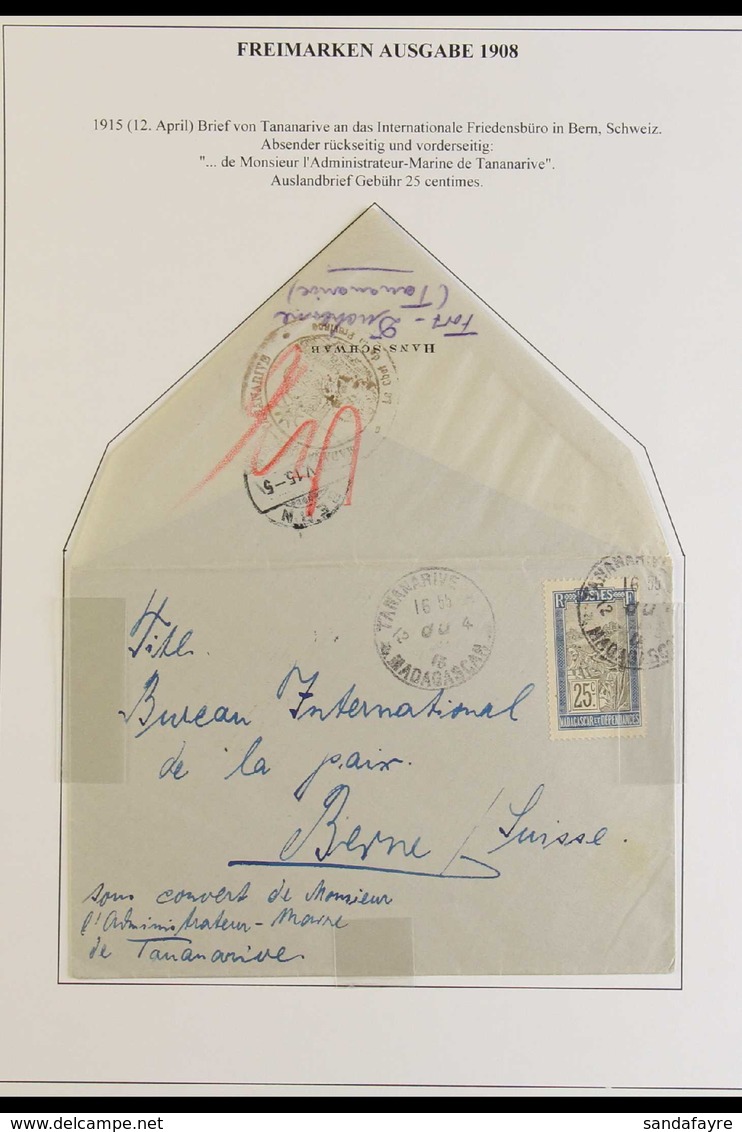 FREIMARKEN AUSGABE 1908
1915 (12. April) Brief von Tananarive an das Internationale Friedensbüro in Bern, Schweiz.
Absender rückseitig und vorderseitig:
"... de Monsieur l'Administrateur-Marine de Tananarive".
Auslandbrief Gebühr 25 centimes.
Fort-Duchesne
(Tananarive)
HANS SCHWAB
TANANARIVE
BERN
V.15-5
TANANARIVE
16 55
12 4
15
MADAGASCAR
TANANARIVE
16 55
12
MADAGASC
R POSTES F
25 c
MADAGASCAR ET DÉPENDANCES
Titl.
Bureau International
de la paix.
Berne / Suisse.
sous couvert de Monsieur
l'Administrateur-Maire
de Tananarive.
sandafayre